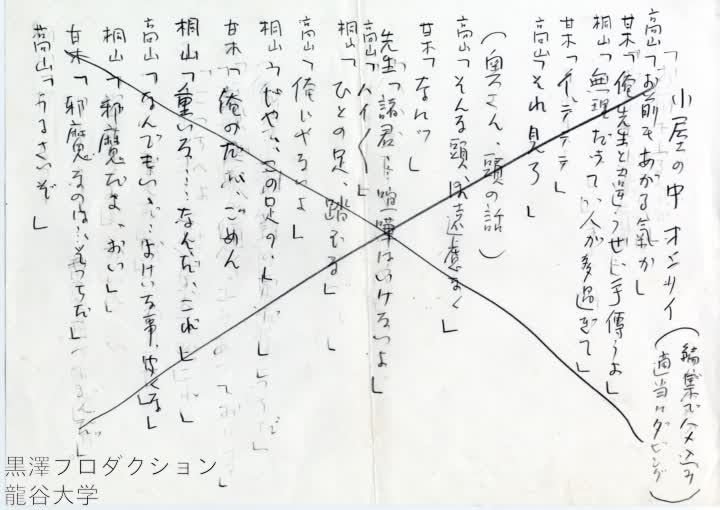 小屋の中 オンリイ
(編集でハメ込み
適当にダビング)
高山「お前もあがる気か」
甘木「俺、先生と遣うぜ、手傳うよ」
桐山「無理だよ、せまい、人が多過ぎて」
甘木「イテテテテ」
高山「それ見ろ」
(奥さん、頭の話)
高山「そんな頭、遠慮なく」
甘木「なれッ」
先生「諸君…喧嘩はいけないよ」
高山「ハイハイ」
桐山「ひとの足、踏んでる」
高山「俺じゃないよ」
桐山「じゃ、この足の、」
甘木「俺のだ、ごめん」
桐山「重いな…なんだい、これ」
高山「なんでもいゝ…よけいな事、云ふな」
桐山「邪魔だよ、おい」
甘木「邪魔なのは…そっちだ」
高山「うるさいぞ」
黒澤プロダクション
龍谷大学